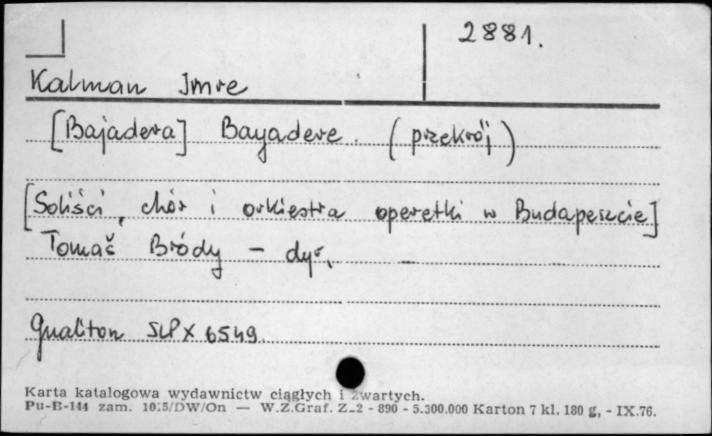 2881.
Kalman Imre
[Bajadera] Bayadere. (przekrój)
[Soliści, chór i orkiestra operetki w Budapeszcie]
Tomaš Bródy - dyr.
Qualiton SLPX 6549
Karta katalogowa wydawnictw ciągłych i zwartych.
Pu-B-144 zam. 1015/DW/On — W.Z.Graf. Z-2 - 890 - 5.300.000 Karton 7 kl. 180 g, - IX.76.